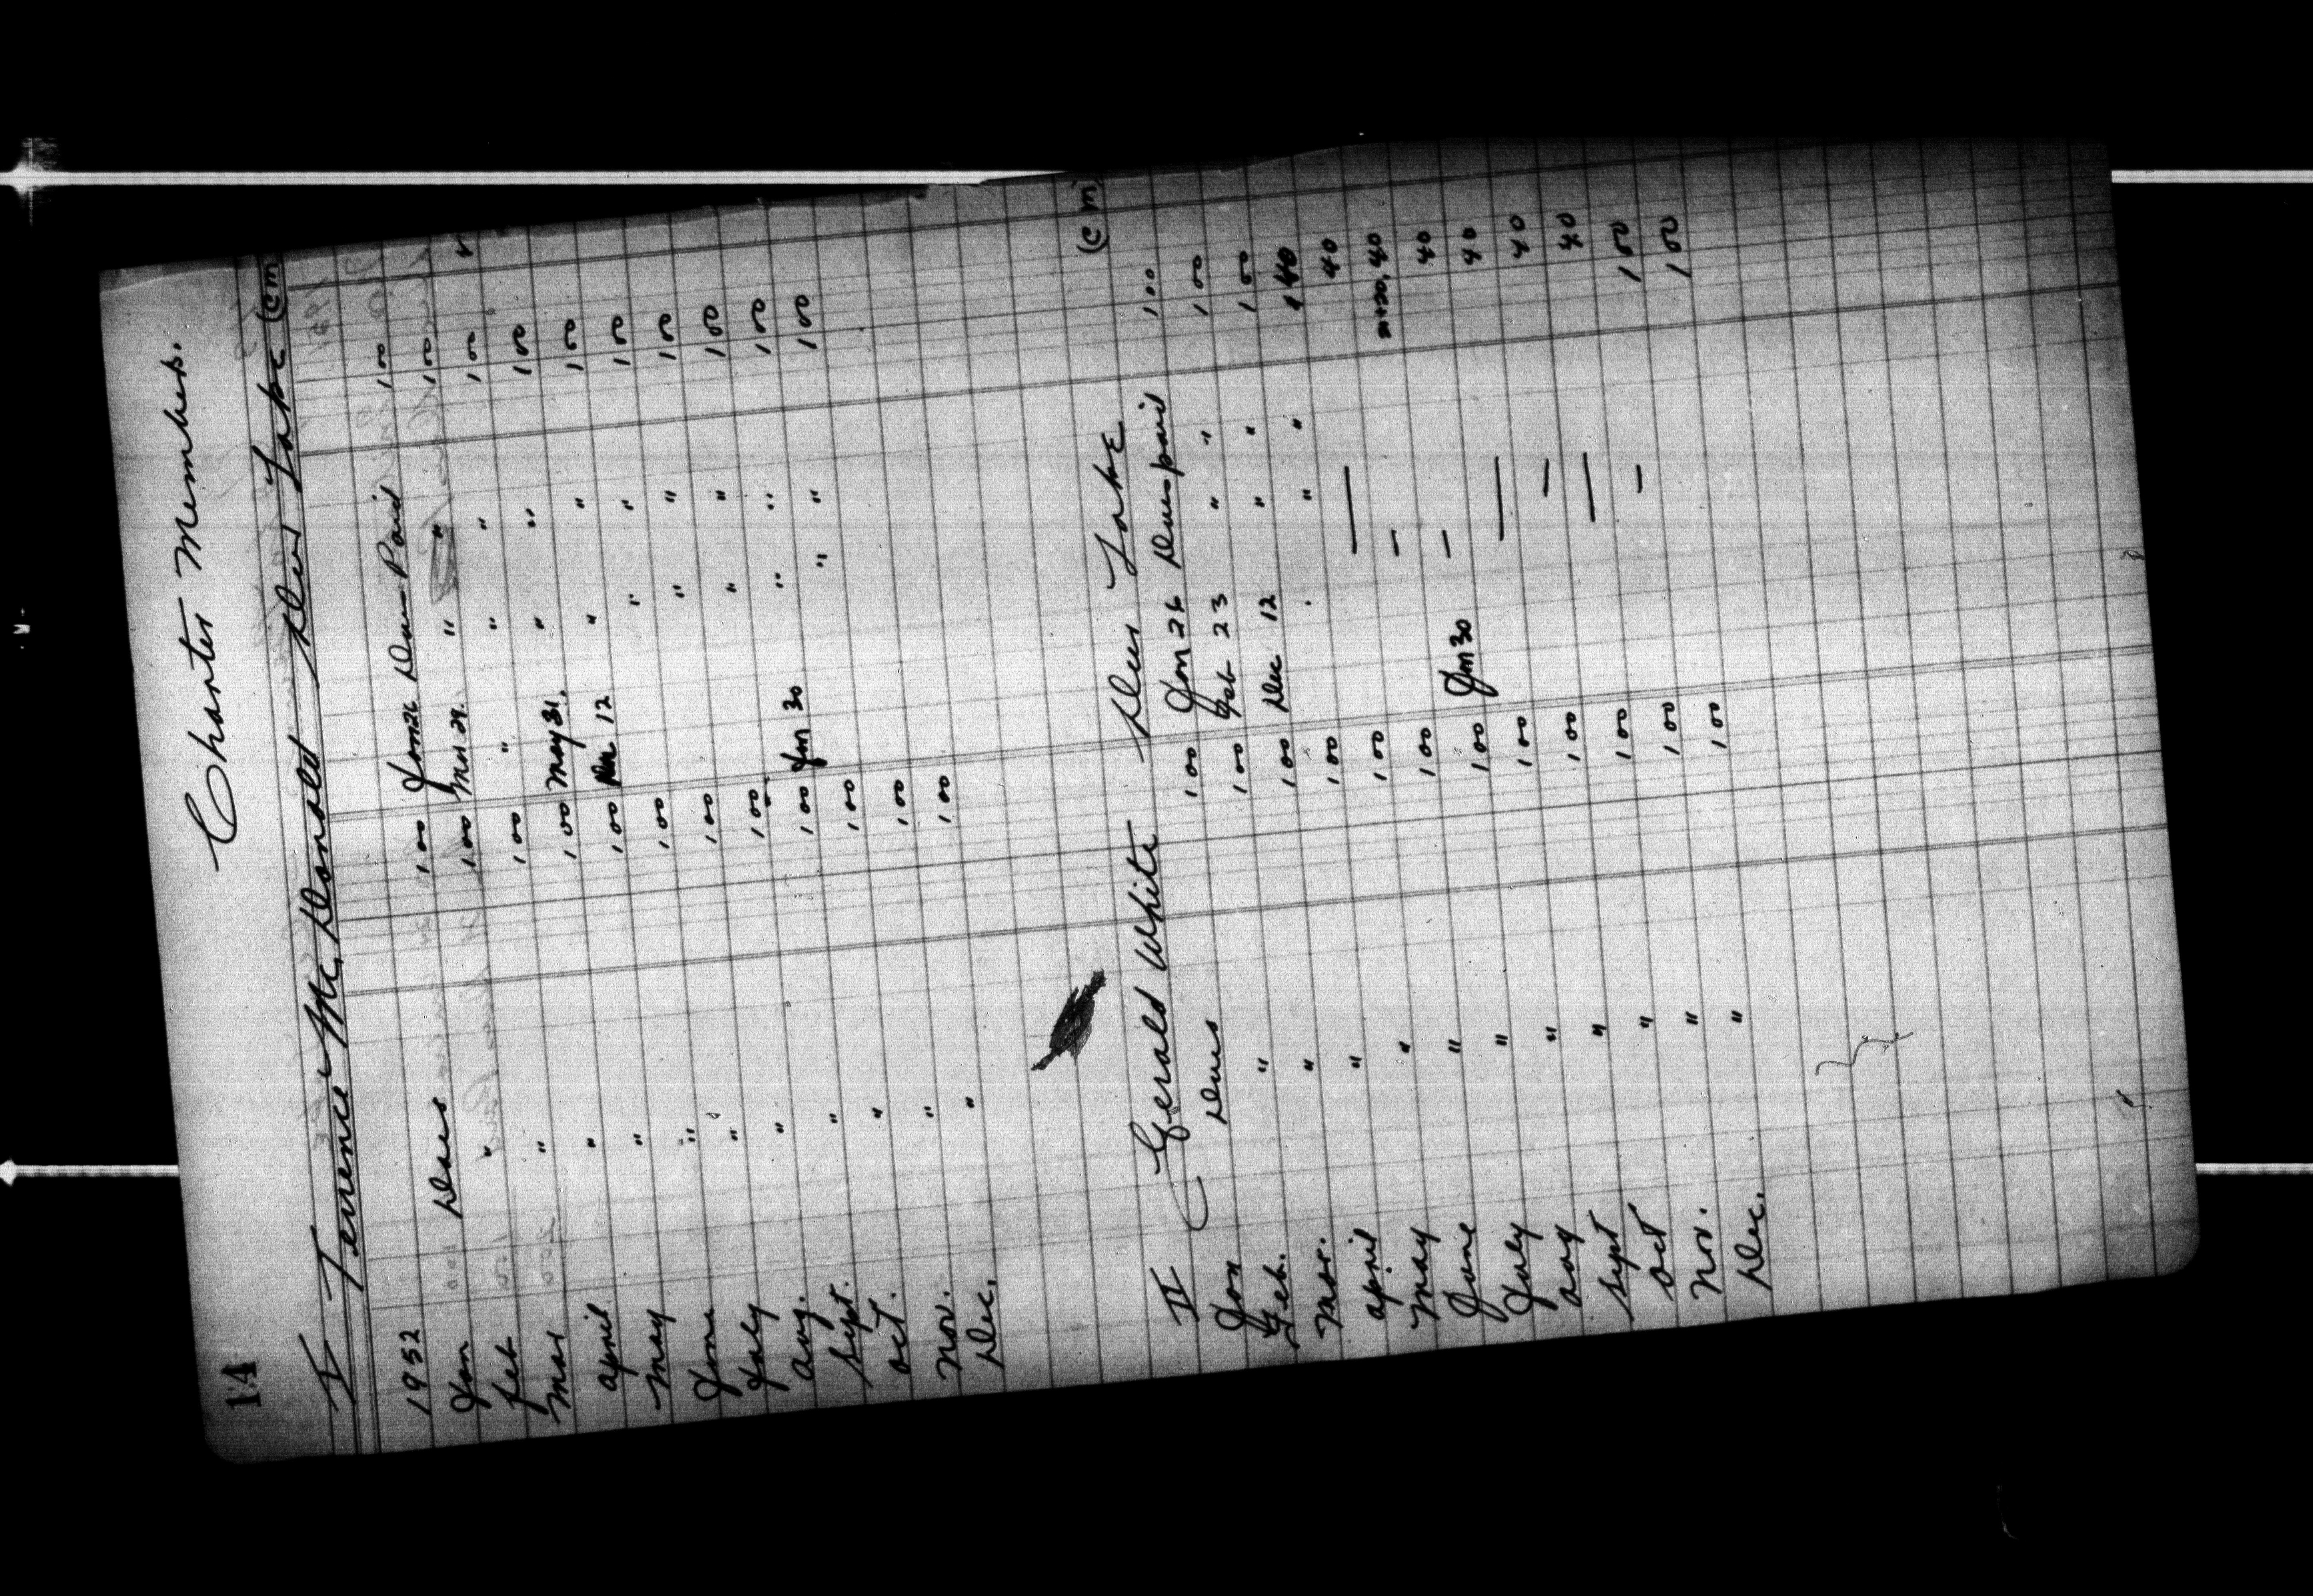 14
Charter Members.
I Terrence Mc, Donald Deer Lake (cm
1952
Jan Dues 1 00 Jan 26 Dues Paid 1 00
feb " 1 00 Mar 29. " " 1 00
Mar " 1 00 " " " 1 00
april " 1 00 May 31. " " 1 00
May " 1 00 Dec 12 " " 1 00
June " 1 00 " " 1 00
July " 1 00 " " 1 00
aug. " 1 00 " " 1 00
Sept. " 1 00 Jan 30 " " 1 00
oct. " 1 00 " " 1 00
Nov. " 1 00
Dec. " 1 00
II Gerald White Deer Lake (cm)
Jan Dues 1 00 Jan 26 Dues paid 1 00
Feb. " 1 00 Feb 23 " " 1 00
Mar. " 1 00 Dec 12 " " 1 00
april " 1 00 " " 40
May " 1 00 — 40
June " 1 00 — 40
July " 1 00 Jan 30 — 40
aug " 1 00 — 40
Sept " 1 00 — 40
oct " 1 00 — 40
Nov. " 1 00 — 1 00
Dec. " 1 00 1 00